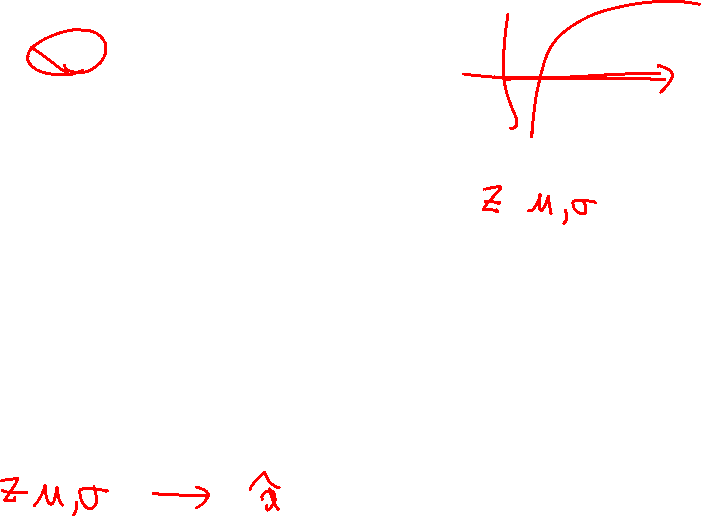 z μ,σ
z μ,σ → x̂